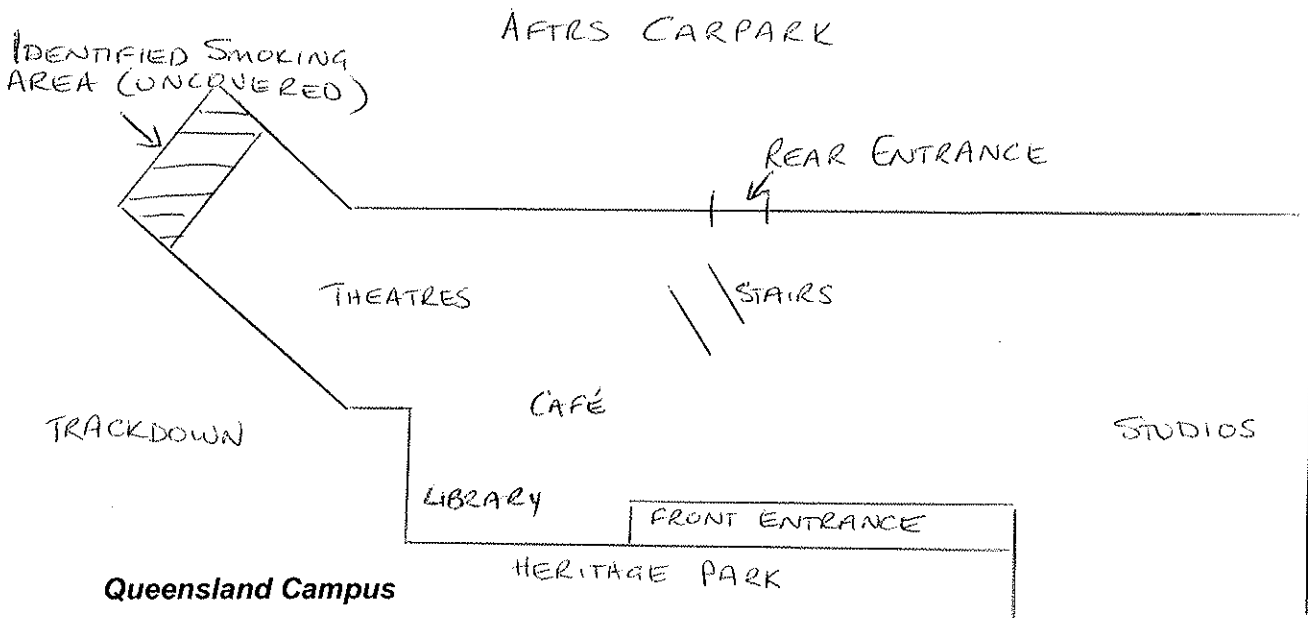 AFTRS CARPARK
IDENTIFIED SMOKING
AREA (UNCOVERED)
REAR ENTRANCE
THEATRES
STAIRS
CAFÉ
TRACKDOWN
STUDIOS
LIBRARY
FRONT ENTRANCE
HERITAGE PARK
Queensland Campus